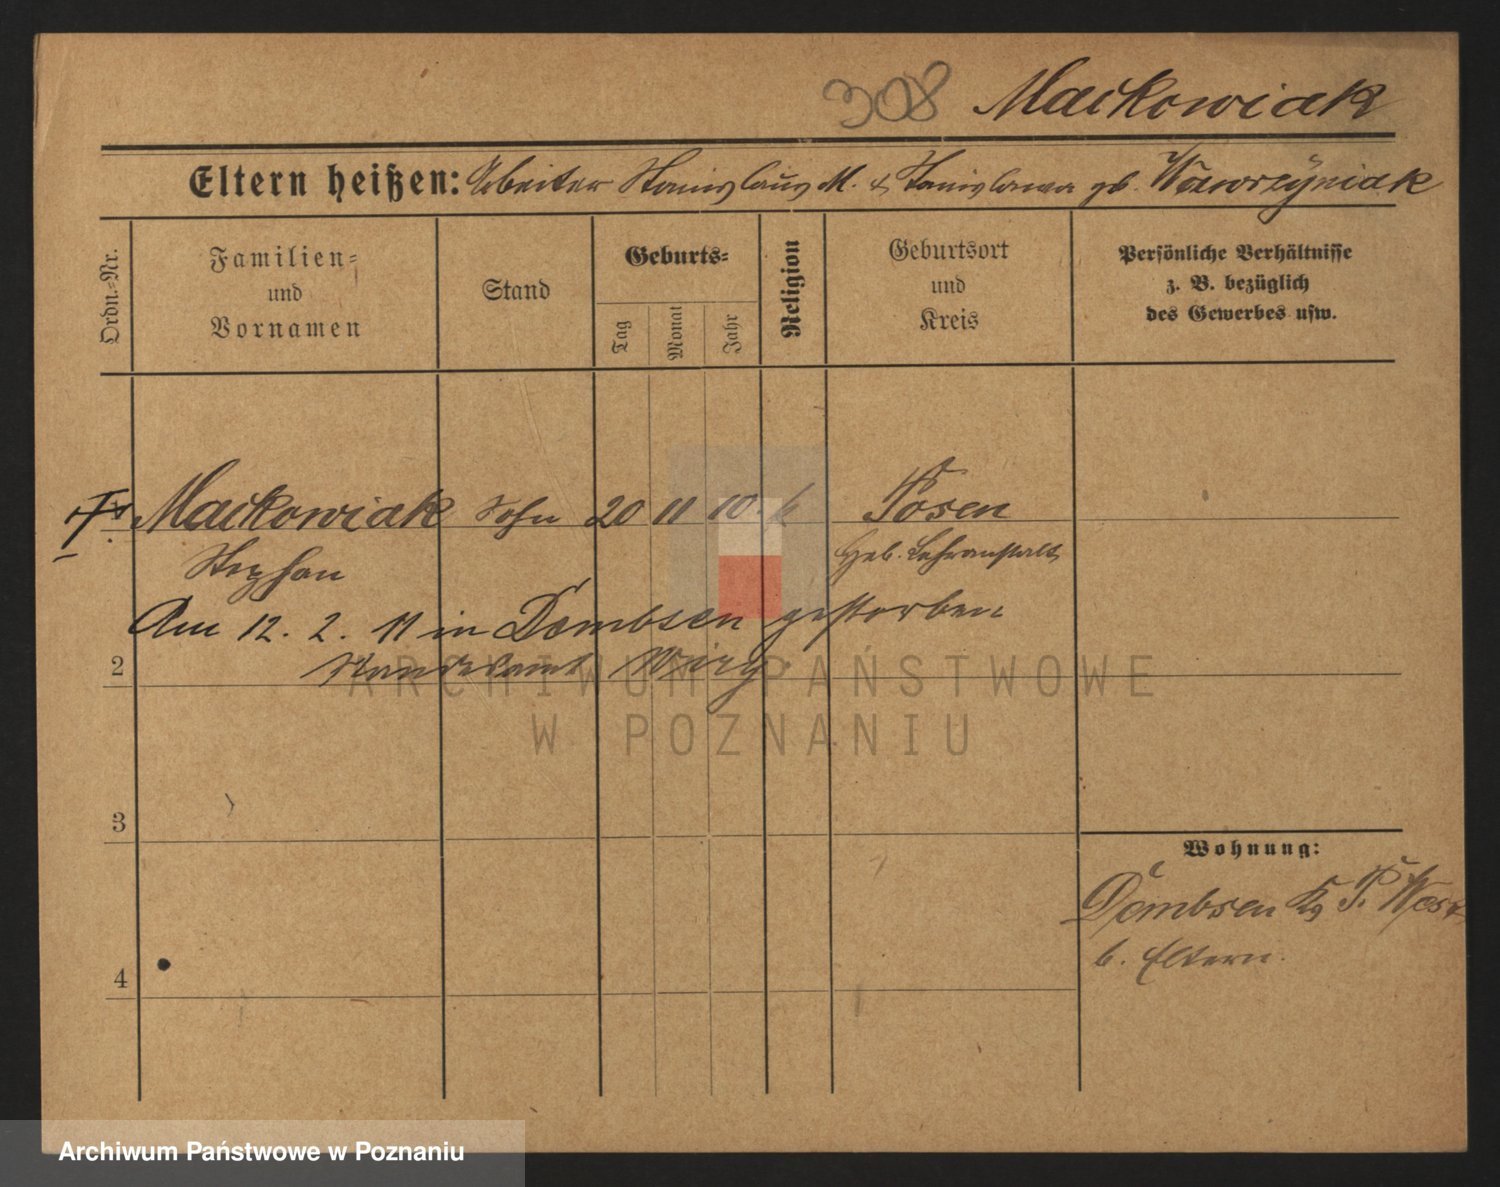 308 Maćkowiak
Eltern heißen: Arbeiter Stanislaus M. & Stanislawa gb. Wawrzyniak
Ordn.-Nr.
Familien-
und
Vornamen
Stand
Geburts-
Tag
Monat
Jahr
Religion
Geburtsort
und
Kreis
Persönliche Verhältnisse
z. B. bezüglich
des Gewerbes usw.
Maćkowiak Sohn 20 11 10 k Posen
Stephan Heb. Lehranstalt
Am 12. 2. 11 in Dembsen gestorben
2 Standesamt
ARCHIWUM PAŃSTWOWE
W POZNANIU
3
Wohnung:
Dembsen Kr P. West
b. Eltern.
4
Archiwum Państwowe w Poznaniu